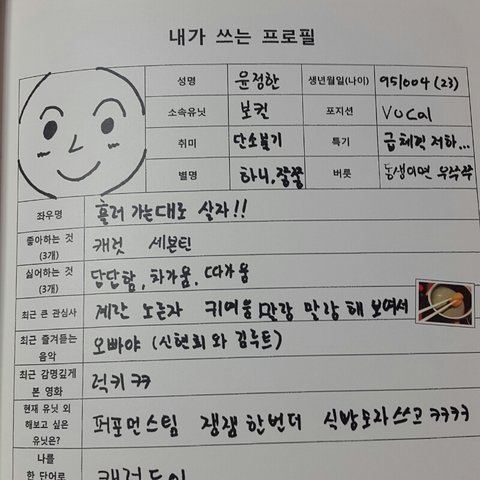 내가 쓰는 프로필
성명 윤정한 생년월일(나이) 951004 (23)
소속유닛 보컬 포지션 Vocal
취미 단소불기 특기 급체력 저하...
별명 하니, 쭝쭝 버릇 동생이면 우쭈쭈
좌우명 흘러 가는대로 살자!!
좋아하는 것 (3개) 캐럿 세븐틴
싫어하는 것 (3개) 답답함, 차가움, 따가움
최근 큰 관심사 계란 노른자 귀여움 말랑 말랑 해 보여서
최근 즐겨듣는 음악 오빠야 (신현희와 김루트)
최근 감명깊게 본 영화 럭키 ㅋㅋ
현재 유닛 외 해보고 싶은 유닛은? 퍼포먼스팀 쟴쟴 한번더 식빵모자쓰고 ㅋㅋㅋㅋ
나를 한 단어로